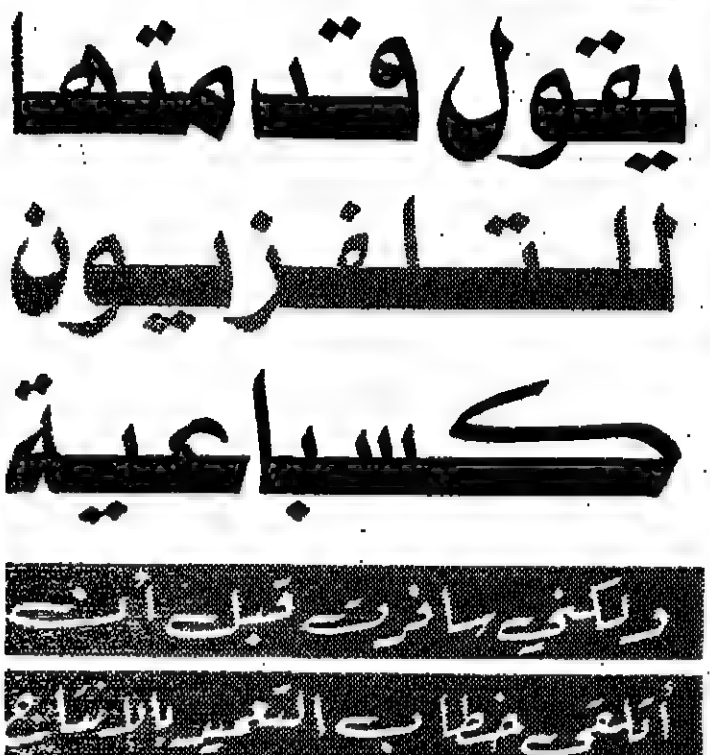 يقول قدمتها
للتلفزيون
كسباعية
ولكني سافرت قبل أن
أتلقى خطاب التعميد بالرضا